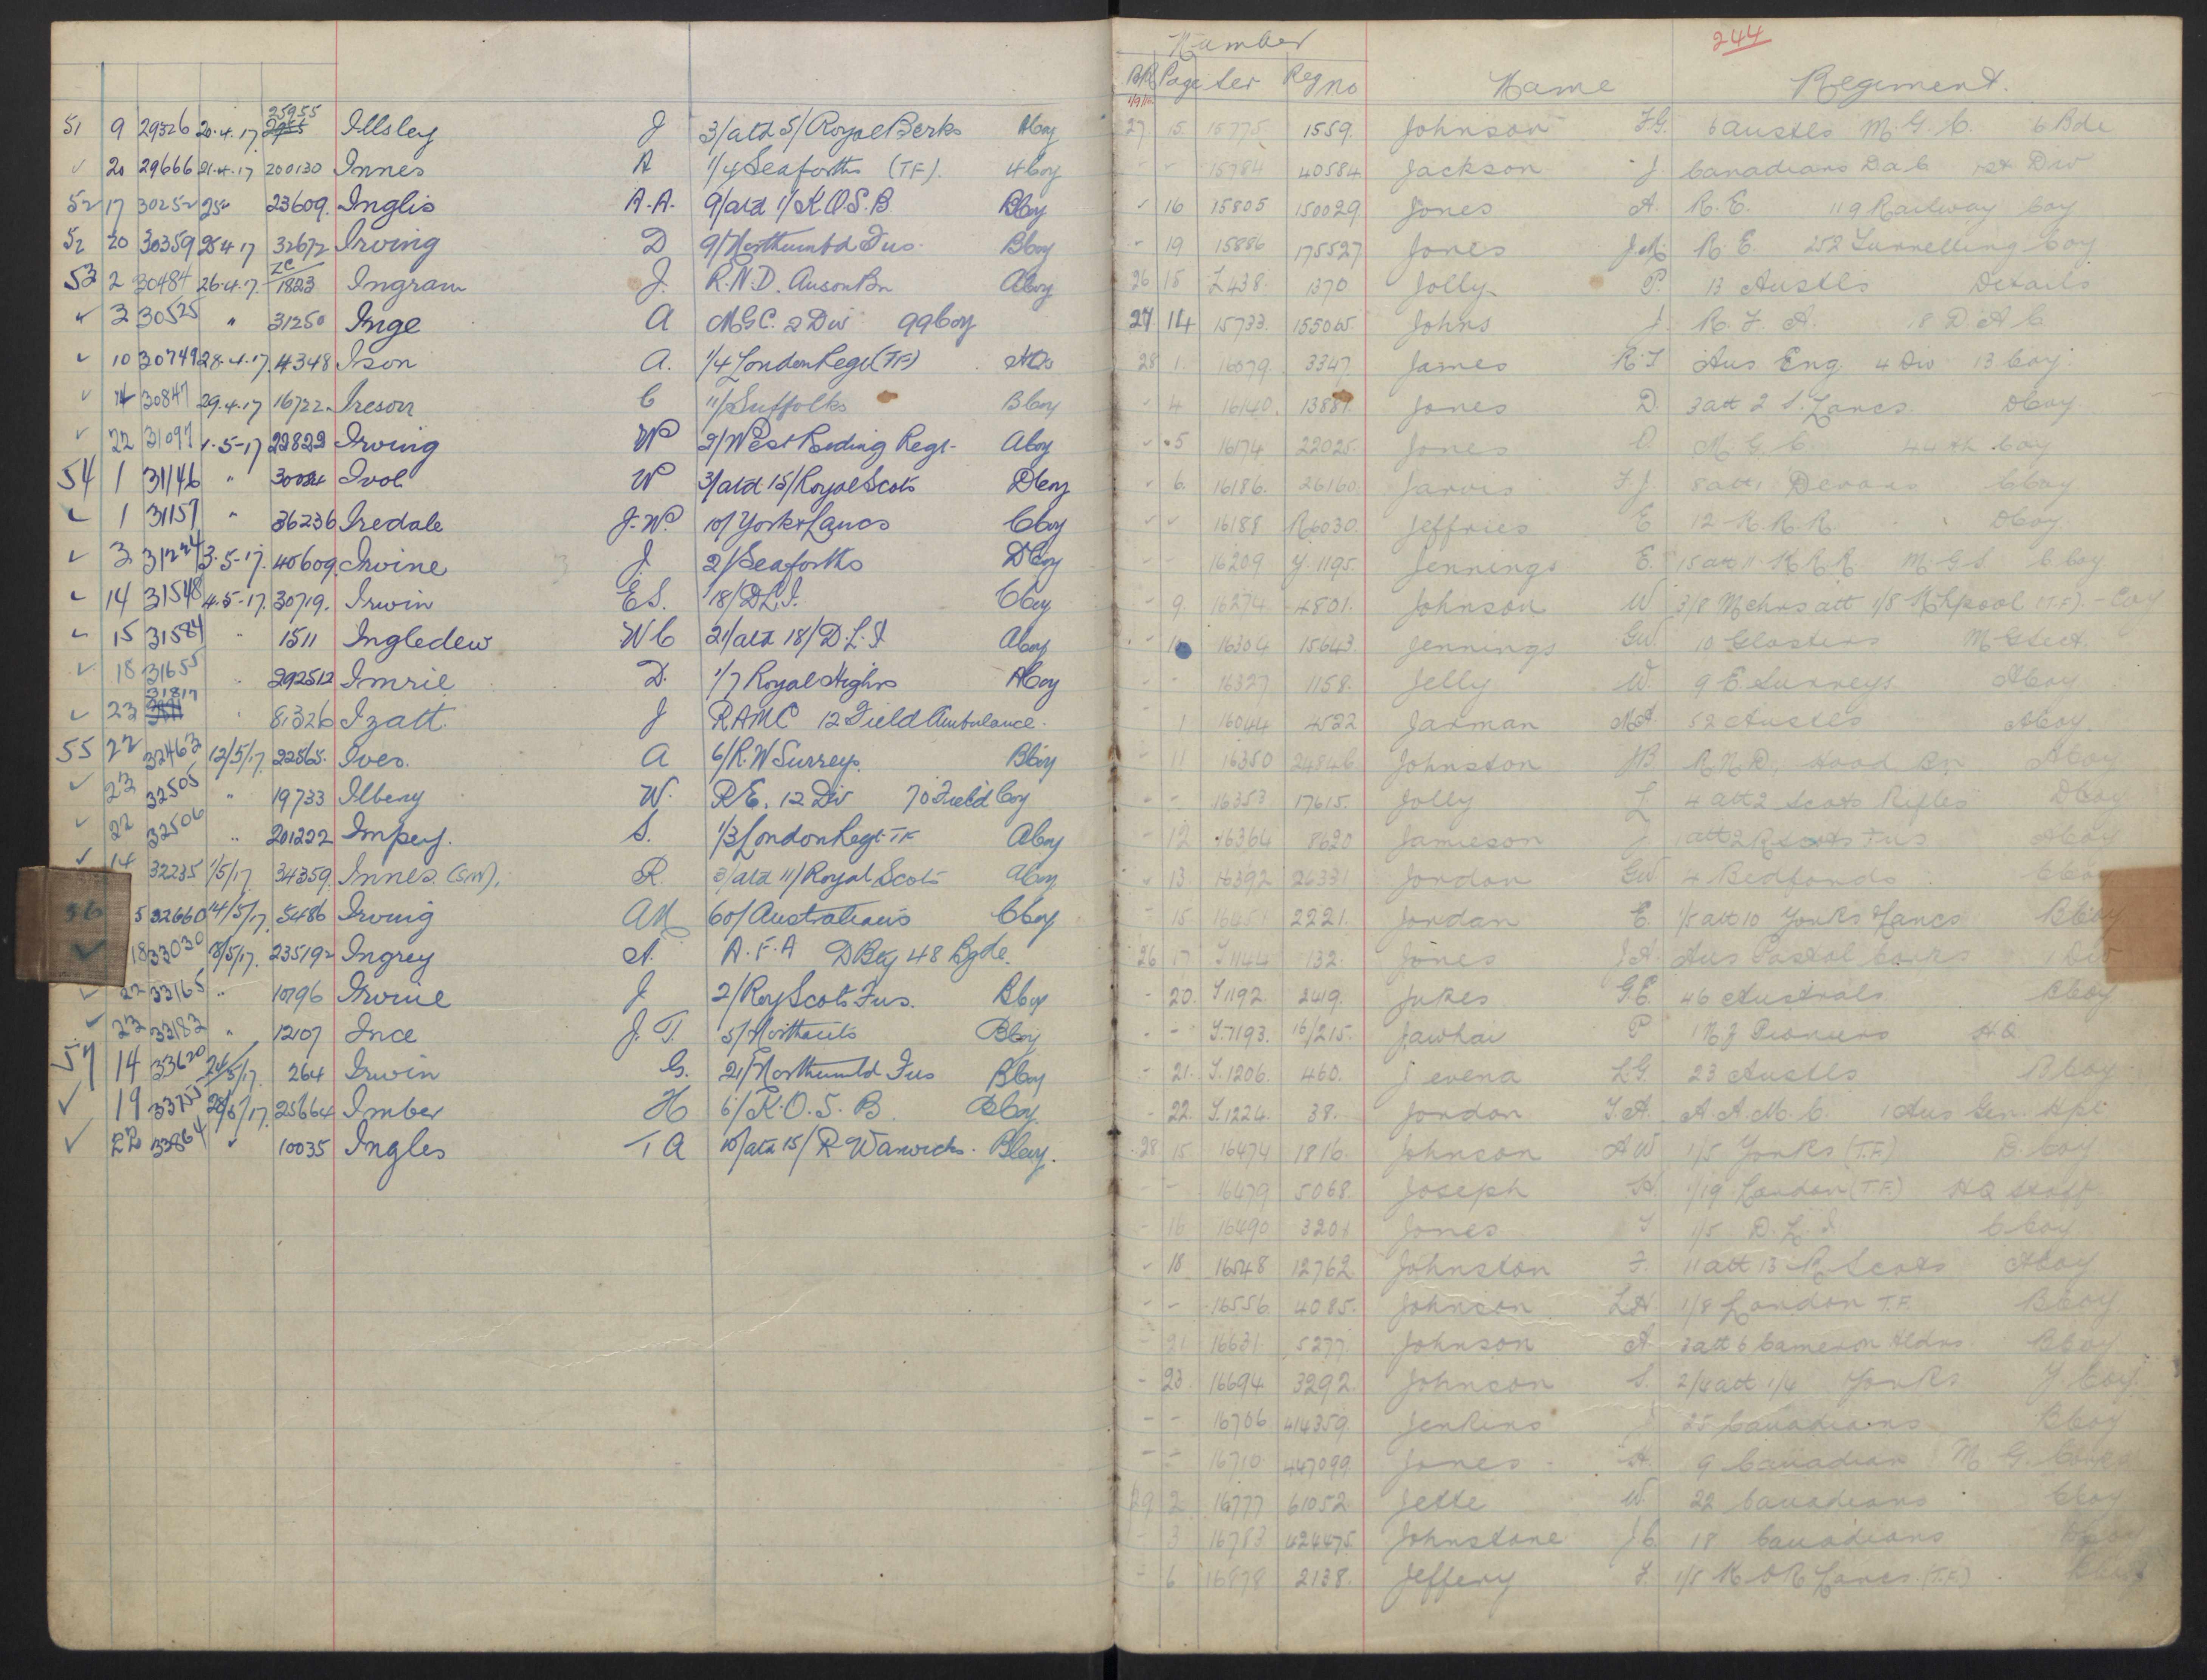 51 9 29526 20.4.17 25955 Illsley J 3/attd 5/Royal Berks ACoy
✓ 20 29666 21.4.17 200130 Innes A 1/4 Seaforths (TF). 4 Coy
52 17 30252 25" 23609. Inglis A.A. 9/attd 1/K.O.S.B BCoy
52 20 30359 25.4.17 32672 Irving D 9/Northumbd Fus. BCoy
53 2 30484 26.4.17. ZC/1823 Ingram J. R.N.D. Anson Bn ACoy
" 3 30525 " 31250 Inge A M.G.C. 2 Div 99 Coy
✓ 10 30749 28.4.17. 4348 Ison A. 1/4 London Regt (TF)
✓ 14 30847 29.4.17 16722 Ireson C 11/Suffolks BCoy
✓ 22 31097 1.5-17 22822 Irving W 2/West Riding Regt- ACoy
54 1 31146 " Ivol W 3/attd 15/Royal Scots DCoy
✓ 1 31157 " 36236 Iredale J.W. 10/York & Lancs CCoy
✓ 3 31224 3.5-17. 40609. Irvine J 2/Seaforths DCoy
✓ 14 31548 4.5-17. 30719. Irwin E.S. 18/D.L.I. CCoy
✓ 15 31584 " 1511 Ingledew W C 21/attd 18/D.L.I ACoy
✓ 18 31655 " 292512 Imrie D. 1/7 Royal Highrs ACoy
✓ 23 31817 " 81326 Izatt. J RAMC 12 Field Ambulance.
55 22 32463 12/5/17. 22565. Ives. A 6/R.W Surreys. BCoy
✓ 23 32505 " 19733 Ilbery W. R.E. 12 Div 70 Field Coy
✓ 22 32506 " 201222 Impey. S. 1/3 London Regt TF ACoy
✓ 14 32235 1/5/17. 34359. Innes. (S/W). R. 3/attd 11/Royal Scots ACoy
56 5 32660 14/5/17. 5486 Irving A M 60/Australians CCoy
✓ 18 33030 18/5/17. 235192 Ingrey A. R.F.A D Bty 48 Bgde.
✓ 22 33165 " 10796 Irvine J 2/Roy Scots Fus. BCoy
✓ 23 33183 " 12107 Ince J.T. 5/Northants BCoy
57 14 33620 26/5/17. 264 Irwin G. 21/Northumbd Fus BCoy
✓ 19 33755 28/5/17. 25664 Imber H 6/K.O.S.B. BCoy
✓ 22 33864 ✓ 10035 Ingles T A 10/attd 15/R Warwicks. BCoy.
244
Number
Page Ser Reg no Name Regiment.
27 15. 15775 1559. Johnson F.G. 6 Austls M.G.C. 6 Bde
- - 15784 40584 Jackson J. Canadians D a C 1st Div
✓ 16 15805 150029 Jones A. R.E. 119 Railway Coy
✓ 19 15886 175527 Jones J.M. R.E. 252 Tunnelling Coy
26 15 1370 Jolly P. 13 Austls Details
27 14 15733. Johns J. R.F.A. 18 D A C
28 1. 16079. 3347 James R.J Aus Eng. 4 Div 13 Coy.
✓ 4 16140. 13881. Jones D. 3 att 2 S. Lancs. DCoy
✓ 5 16174 22025. Jones O. M G C. 44th Coy
✓ 6. 16186. 26160. Jarvis F.J. 8 att 1 Devons CCoy
✓ ✓ 16188 R6030. Jeffries E 12 K.R.R. DCoy
- - 16209 Y.1195. Jennings E. 15 att 11 K.R.R. M G S. C Coy
- 9. 16274 4801. Johnson W 3/8 Mchrs att 1/8 Lpool (T.F.). - Coy
- 16304 15643. Jennings G.W. 10 Glosters M G Sect.
- - 16327 1158. Jelly W. 9 E. Surreys ACoy
- 1 16044 4522 Jarman M.A. 52 Austls ACoy.
- 11 16350 24846 Johnston J.B. R.N.D., Hood Bn ACoy
- - 16353 17615. Jolly L. 4 att 2 Scots Rifles DCoy
- 12. 16364 8620 Jamieson J 1 att 2 R Scots Fus ACoy
✓ 13. 16392 26331 Jordan G.W. 4 Bedfords
- 15. 2221. Jordan E. 1/5 att 10 Yorks Lancs BCoy
26 17 J1144 132. Jones J.A. Aus Postal Corps 1 Div
- 20. J1192. 2419. Jukes G.E. 46 Australs. CCoy
- - J.1193. 16/215. Jawhai P 1 N Z Pioneers H Q
- 21. J.1206. 460. Jevena L.G. 23 Austls BCoy
- 22. J.1224. 38. Jordon J.A. A.A.M.C. 1 Aus Gen Hpl
28 15 16474 1816. Johnson A W 1/5 Yorks (T.F.) B. Coy
- - 16479 5068. Joseph H. 1/19 London (T.F.) H Q Staff
- 16 16490 3201 Jones J 1/5 D.L.I. CCoy
✓ 18 16548 12762 Johnston F. 11 att 13 R. Scots ACoy
- - 16556 4085. Johnson L.H. 1/8 London T.F. BCoy
- 21 16631 5277 Johnson A 3 att 6 Cameron Hldrs BCoy
- 23 16694 3292. Johnson S. 2/4 att 1/4 Yorks Y Coy.
- - 16706 414359. Jenkins J 25 Canadians BCoy
- - 16710 447099 Jones H. 9 Canadian M G Corps
29 2 16777 61052 Jette W. 22 Canadians CCoy
- 3 16783 424475. Johnstone J.C. 18 Canadians
- 6 16878 2138. Jeffery J. 1/5 K O R Lancs. (T.F.)